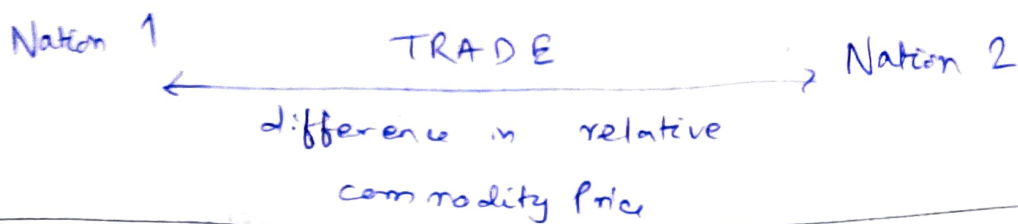 Nation 1 TRADE Nation 2
difference in relative
commodity Price